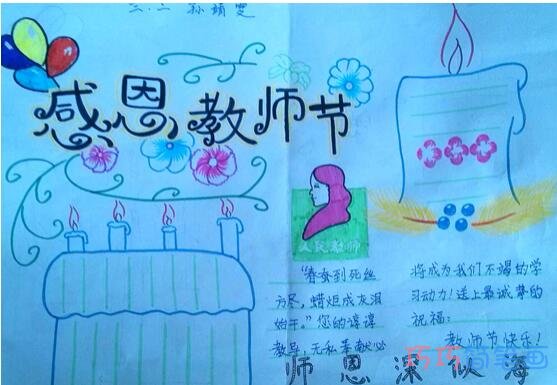 三.二 孙靖雯
感恩教师节
人民教师
“春蚕到死丝
方尽,蜡炬成灰泪
始干。”您的谆谆
教导,无私奉献必
将成为我们不竭的学
习动力!送上最诚挚的
祝福:
教师节快乐!
师恩深似海
巧巧简笔画